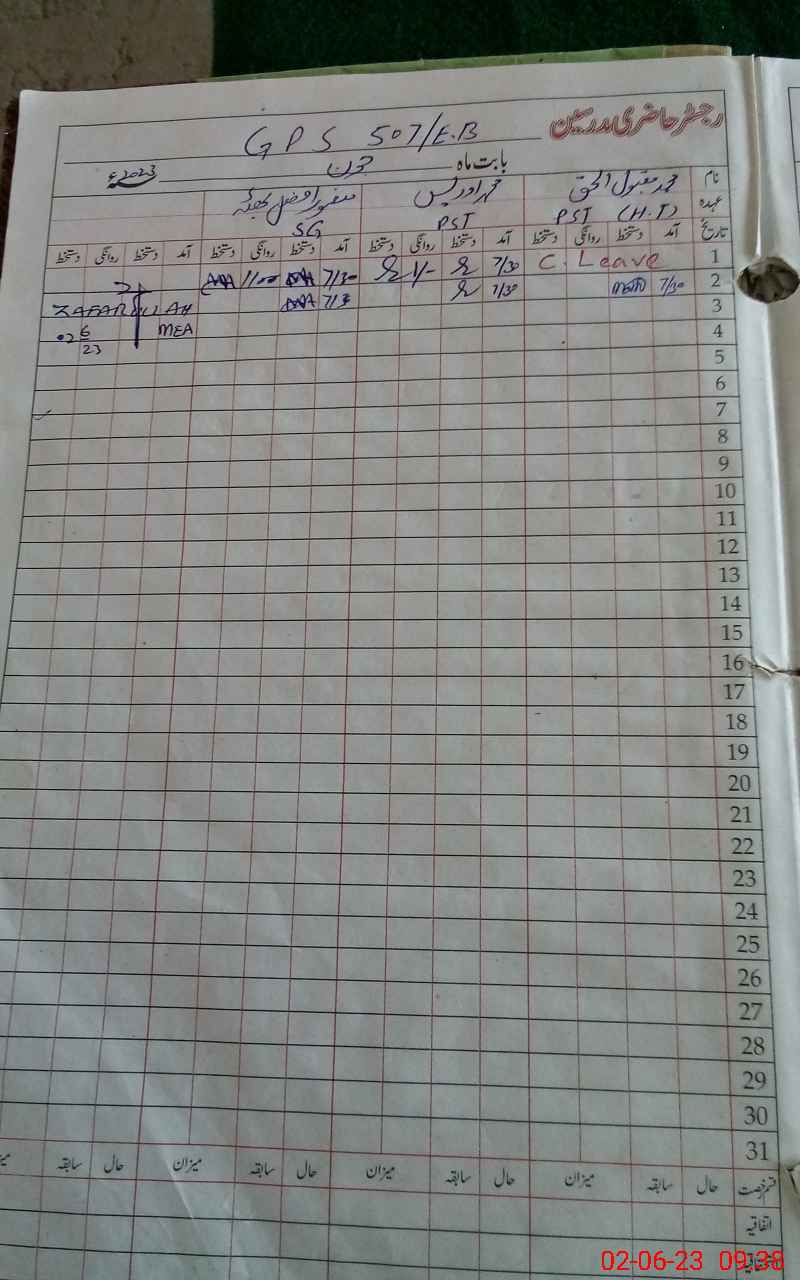 رجسٹر حاضری مدرسین
GPS 507/E.B
بابت ماہ جون 2023ء
نام محمد مقبول الحق محمد ادریس
عہدہ PST (H.T) PST SG
تاریخ آمد دستخط روانگی دستخط آمد دستخط روانگی دستخط آمد دستخط روانگی دستخط آمد دستخط روانگی دستخط
1 C. Leave 7/30 1/- 7/30 11/00
2 7/30 7/30 7/3
ZAFARULLAH
3 MEA
02 6/23
4
5
6
7
8
9
10
11
12
13
14
15
16
17
18
19
20
21
22
23
24
25
26
27
28
29
30
31
قسم رخصت حال سابقہ میزان حال سابقہ میزان حال سابقہ میزان حال سابقہ
اتفاقیہ
02-06-23 09:38